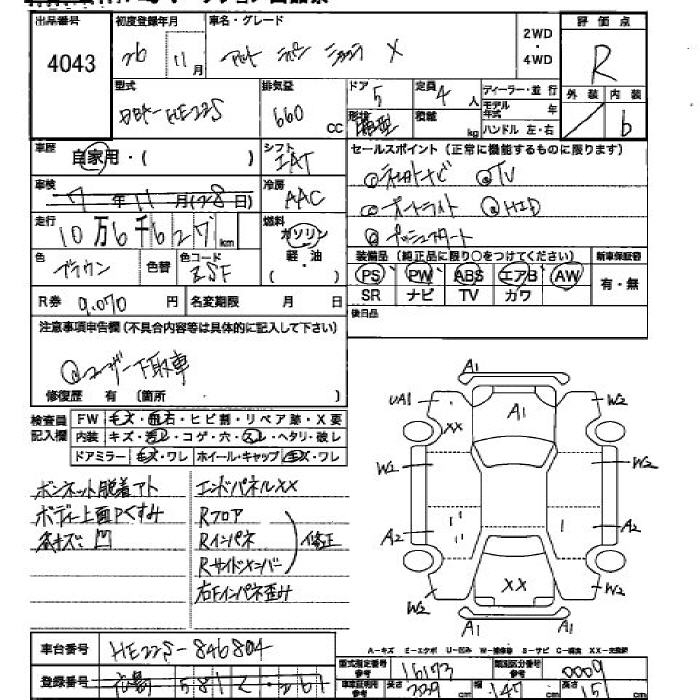 出品番号 初度登録年月 車名・グレード 2WD・4WD 評価点
4043 26年 11月 アルト ラパン ショコラ X R
型式 排気量 ドア 定員 ディーラー・並行 外装 内装
DBA-HE22S 660 CC 5 4人 モデル年式 年 b
形状 箱型 積載 kg ハンドル 左・右
車歴 自家用・( ) シフト IAT セールスポイント (正常に機能するものに限ります)
車検 7年11月(28日) 冷房 AAC
ナビ TV
走行 10万6千627km 燃料 ガソリン 軽油 ( )
オートライト HID
プッシュスタート
色 ブラウン 色替 色コード ZSF
装備品 (純正品に限り○をつけてください) 新車保証書
PS PW ABS エアB AW 有・無
SR ナビ TV カワ
R券 9,070円 名変期限 月 日
後日品
注意事項申告欄 (不具合内容等は具体的に記入して下さい)
ユーザー下取車
修復歴 有 (箇所 )
検査員記入欄 FW キズ・飛石・ヒビ割・リペア跡・X要
内装 キズ・汚レ・コゲ・穴・スレ・ヘタリ・破レ
ドアミラー キズ・ワレ ホイール・キャップ キズ・ワレ
ボンネット脱着アト エンドパネルXX
ボディー上面Pくすみ Rフロア
キズ・凹 Rインパネ 修正
Rサイドメンバー
右Fインパネ歪み
A1
UA1 A1 W2
XX
W1 W2
A2 A2
W2 XX W2
A1 A1
A-キズ E-エクボ U-凹み W-補修跡 S-サビ C-腐食 XX-交換済
車台番号 HE22S-846804
登録番号 581
型式指定番号 参考 16173 類別区分番号 参考 0009
車庫証明用 参考 長さ 339 cm 幅 147 cm 高さ 151 cm